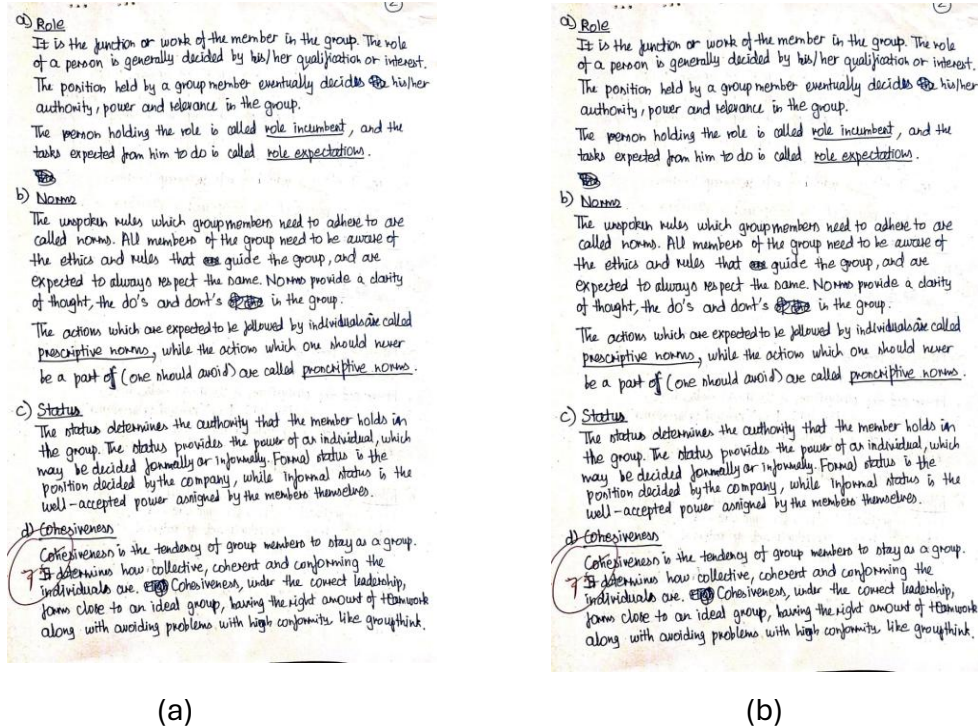 2
a) Role
It is the function or work of the member in the group. The role
of a person is generally decided by his/her qualification or interest.
The position held by a group member eventually decides his/her
authority, power and relevance in the group.
The person holding the role is called role incumbent, and the
tasks expected from him to do is called role expectations.
b) Norms
The unspoken rules which group members need to adhere to are
called norms. All members of the group need to be aware of
the ethics and rules that guide the group, and are
expected to always respect the same. Norms provide a clarity
of thought, the do's and dont's in the group.
The actions which are expected to be followed by individuals are called
prescriptive norms, while the actions which one should never
be a part of (one should avoid) are called proncriptive norms.
c) Status
The status determines the authority that the member holds in
the group. The status provides the power of an individual, which
may be decided formally or informally. Formal status is the
position decided by the company, while informal status is the
well-accepted power assigned by the members themselves.
d) Cohesiveness
Cohesiveness is the tendency of group members to stay as a group.
7 It determines how collective, coherent and conforming the
individuals are. Cohesiveness, under the correct leadership,
forms close to an ideal group, having the right amount of teamwork
along with avoiding problems with high conformity like groupthink.
(a)
2
a) Role
It is the function or work of the member in the group. The role
of a person is generally decided by his/her qualification or interest.
The position held by a group member eventually decides his/her
authority, power and relevance in the group.
The person holding the role is called role incumbent, and the
tasks expected from him to do is called role expectations.
b) Norms
The unspoken rules which group members need to adhere to are
called norms. All members of the group need to be aware of
the ethics and rules that guide the group, and are
expected to always respect the same. Norms provide a clarity
of thought, the do's and dont's in the group.
The actions which are expected to be followed by individuals are called
prescriptive norms, while the actions which one should never
be a part of (one should avoid) are called proncriptive norms.
c) Status
The status determines the authority that the member holds in
the group. The status provides the power of an individual, which
may be decided formally or informally. Formal status is the
position decided by the company, while informal status is the
well-accepted power assigned by the members themselves.
d) Cohesiveness
Cohesiveness is the tendency of group members to stay as a group.
7 It determines how collective, coherent and conforming the
individuals are. Cohesiveness, under the correct leadership,
forms close to an ideal group, having the right amount of teamwork
along with avoiding problems with high conformity like groupthink.
(b)